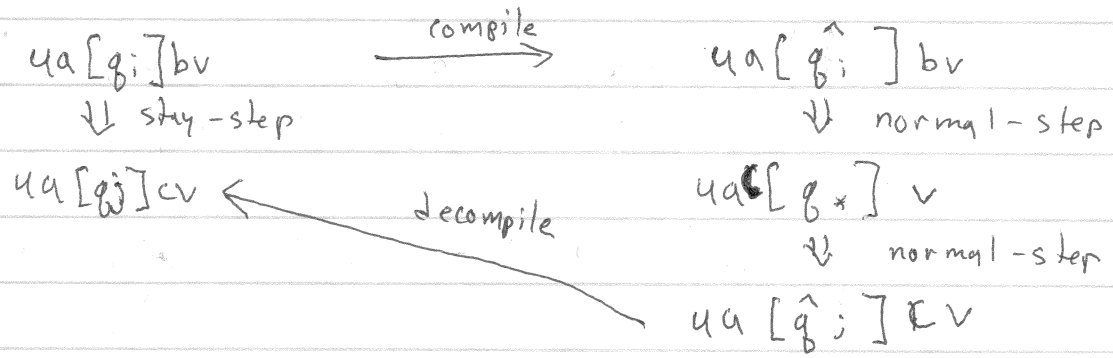 ua[qi]bv compile ua[q̂i]bv
⇓ stay-step ⇓ normal-step
ua[qj]cv decompile uac[q*]v
⇓ normal-step
ua[q̂j]cv